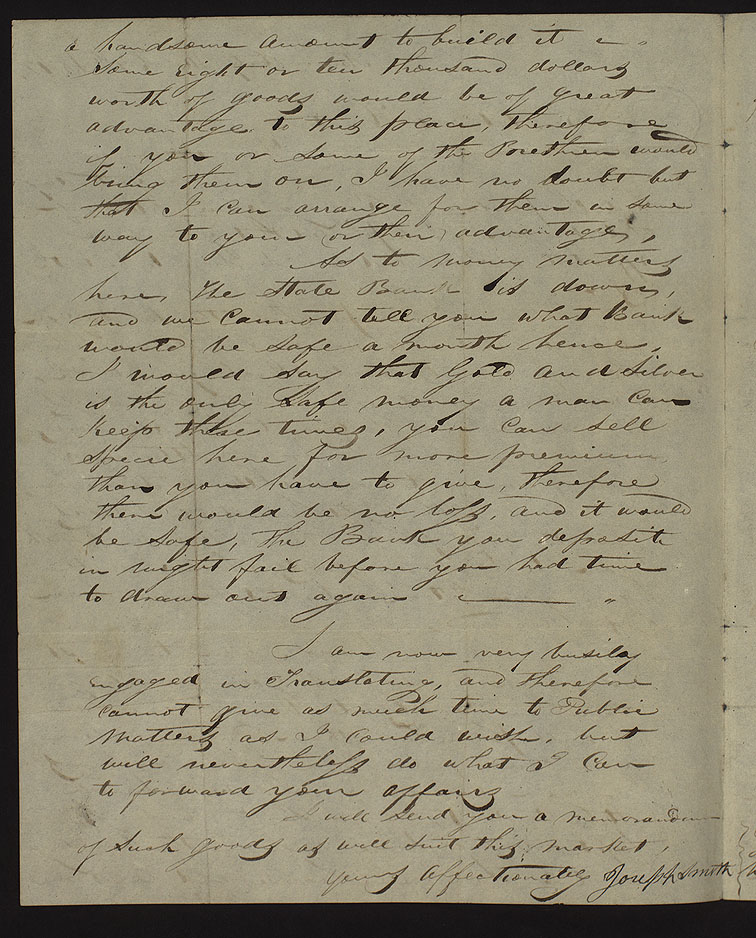 a handsome amount to build it
Some eight or ten thousand dollars
worth of goods would be of great
advantage to this place, therefore
if you or some of the Brethren would
bring them on, I have no doubt but
that I can arrange for them in some
way to your (or their) advantage,
As to money matters
here, The State Bank is down,
and we cannot tell you what Bank
would be safe a month hence,
I would say that Gold and Silver
is the only safe money a man can
keep these times, you can sell
specie here for more premium
than you have to give, therefore
there would be no loss, and it would
be safe, The Bank you deposite
in might fail before you had time
to draw out again
I am now very busily
engaged in Translating, and therefore
cannot give as much time to Public
matters as I could wish, but
will nevertheless do what I can
to forward your affairs
I will send you a memorandum
of such goods as will suit this market,
yours affectionately Joseph Smith